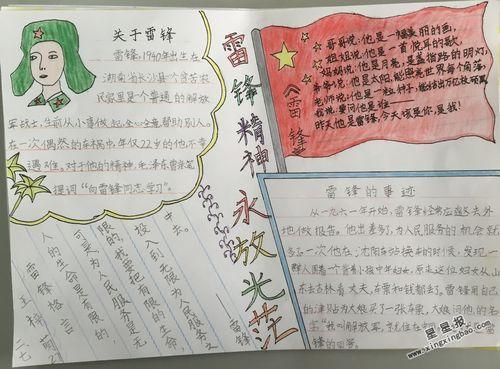 关于雷锋
雷锋,1940年出生在
湖南省长沙县一个贫苦农
民家里是个普通的解放
军战士,生前从小事做起,全心全意帮助别人。
在一次偶然的车祸中,年仅22岁的他不幸
遇难。对于他的精神,毛泽东亲笔
提词“向雷锋同志学习”。
雷锋精神永放光茫
哥哥说:他是一幅美丽的画,
姐姐说:他是一首悦耳的歌,
妈妈说:他是月亮,是盏指路的明灯,
爷爷说:他是太阳,能照亮世界每个角落,
老师说:他是一粒种子,能结出万亿枚硕果
我说:要问他是谁
昨天他是雷锋,今天该是你,是我!
《雷锋之
雷锋的事迹
从一九六一年开始,雷锋经常应邀去外
地做报告,他出差多了,为人民服务的机会就
多了一次他在沈阳车站换车的时候,发现一
群人围着个背着小孩中年妇女,原来这位妇女从山
东去吉林看丈夫,车票和钱都丢了。雷锋用自己
的津贴为大嫂买了一张车票,大嫂问他的名
字“我叫解放军,就住在中
锋的回答。
雷锋格言
人的生命是有限的,
可是,为人民服务是无
限的,我要把有限的生命,
投入到无限为人民服务之
中去。
——雷锋
星星报
www.xingxingbao.com